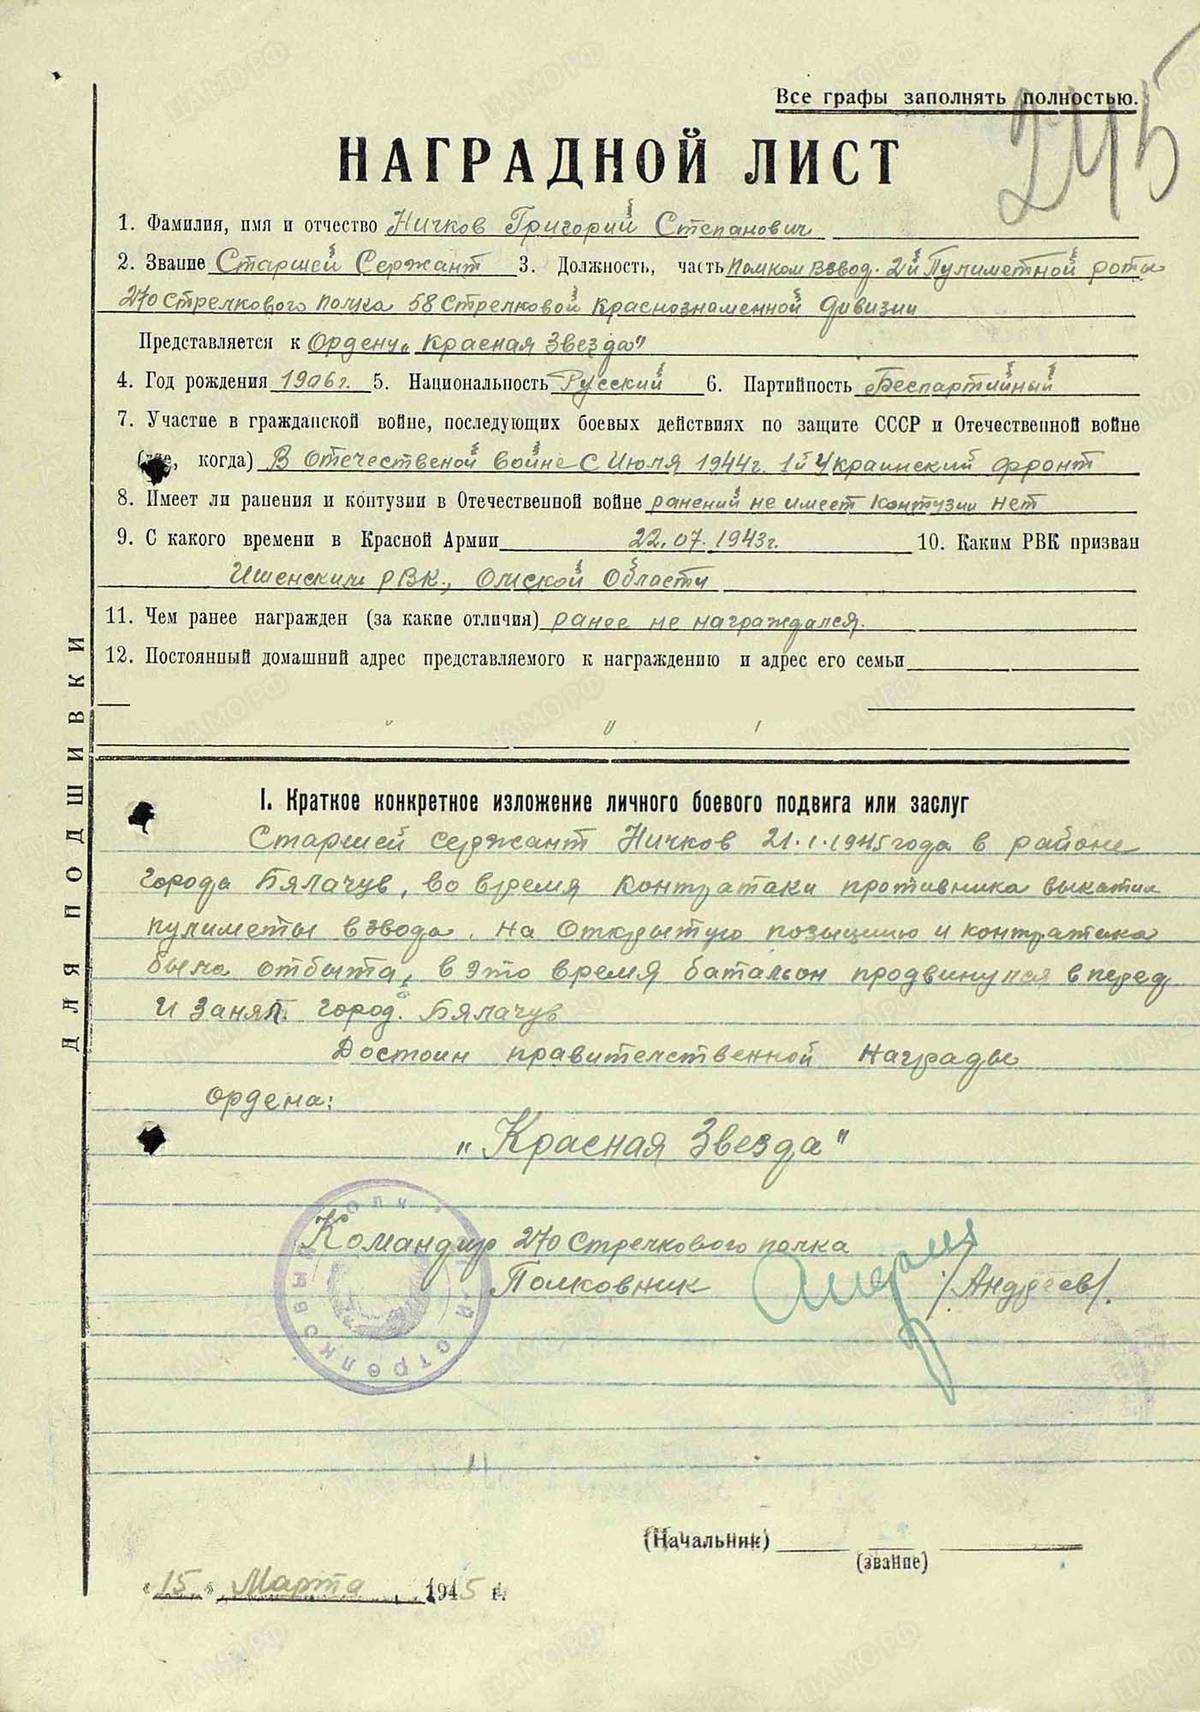 Все графы заполнять полностью.
245
НАГРАДНОЙ ЛИСТ
1. Фамилия, имя и отчество Ничков Григорий Степанович
2. Звание Старшей Сержант 3. Должность, часть Помком взвод. 2й Пулиметной роты
270 Стрелкового полка 58 Стрелковой Краснознаменной дивизии
Представляется к Ордену „Красная Звезда"
4. Год рождения 1906 г. 5. Национальность Русский 6. Партийность Беспартийный
7. Участие в гражданской войне, последующих боевых действиях по защите СССР и Отечественной войне
(где, когда) В Отечественой войне с Июля 1944 г. 1й Украинский фронт
8. Имеет ли ранения и контузии в Отечественной войне ранений не имеет контузии нет
9. С какого времени в Красной Армии 22.07.1943 г. 10. Каким РВК призван
РВК., Омской Области
11. Чем ранее награжден (за какие отличия) ранее не награждался.
12. Постоянный домашний адрес представляемого к награждению и адрес его семьи
ДЛЯ ПОДШИВКИ
I. Краткое конкретное изложение личного боевого подвига или заслуг
Старшей сержант Ничков 21.1.1945 года в районе
города Бялачув, во время контратаки противника выкатил
пулиметы взвода. на открытую позыцию и контратака
была отбыта, в это время батальон продвинулся вперед
и занял. город. Бялачув
Достоин правителственной награды
ордена:
„Красная Звезда"
Командир 270 стрелкового полка
Полковник /Андреев/.
(Начальник)
(звание)
„15„ Марта 1945 г.